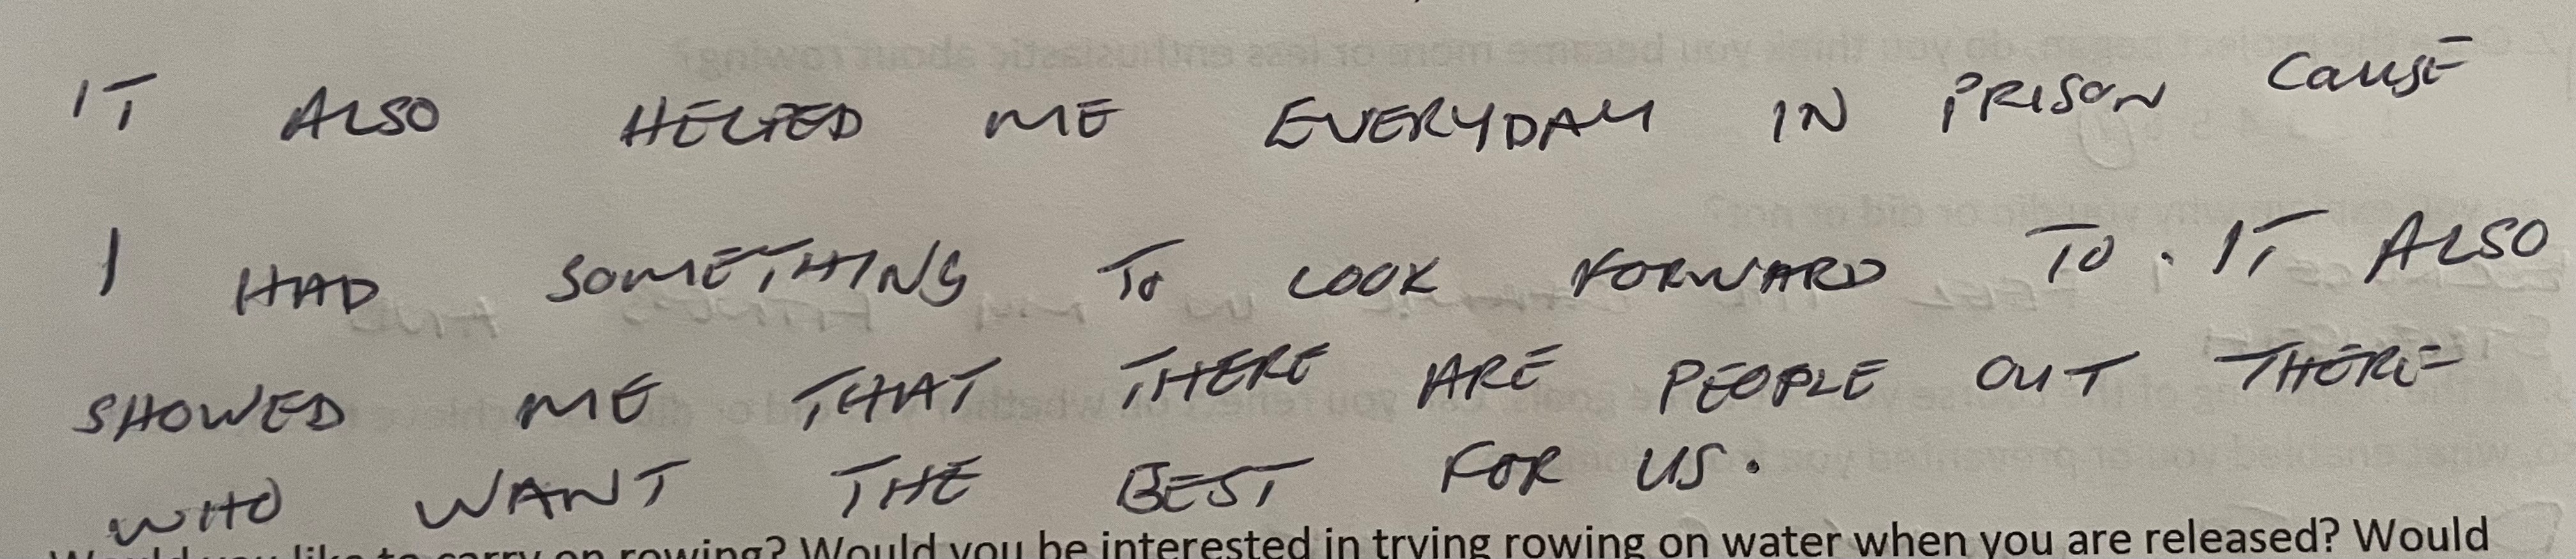 IT ALSO HELPED ME EVERYDAY IN PRISON CAUSE
I HAD SOMETHING TO LOOK FORWARD TO. IT ALSO
SHOWED ME THAT THERE ARE PEOPLE OUT THERE
WHO WANT THE BEST FOR US.
Would you like to carry on rowing? Would you be interested in trying rowing on water when you are released? Would